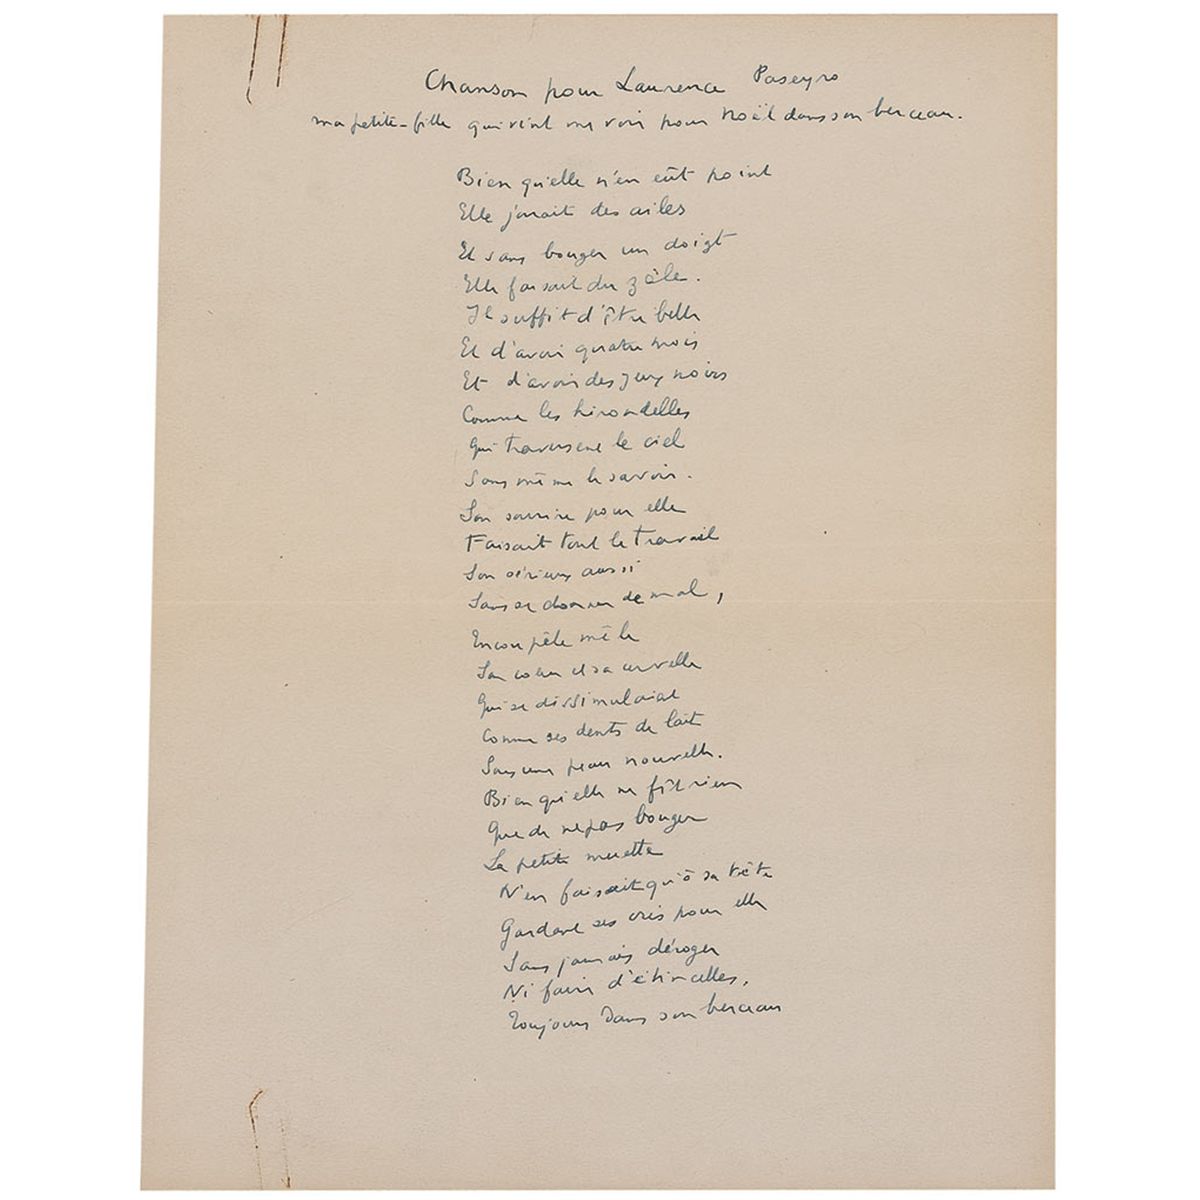 Chanson pour Laurence Paseyro
ma petite-fille qui vint me voir pour Noël dans son berceau.
Bien qu'elle n'en eût point
Elle jouait des ailes
Et sans bouger un doigt
Elle faisait du zèle.
Il suffit d'être belle
Et d'avoir quatre mois
Et d'avoir des yeux noirs
Comme les hirondelles
Qui traversent le ciel
Sans même le savoir.
Son sourire pour elle
Faisait tout le travail
Son sérieux aussi
Sans se donner de mal,
Encor pêle mêle
Son cœur et sa cervelle
Qui se dissimulaient
Comme ses dents de lait
Sous une peau nouvelle.
Bien qu'elle ne fît rien
Que de ne pas bouger
La petite muette
N'en faisait qu'à sa tête
Gardant ses cris pour elle
Sans jamais déroger
Ni faire d'étincelles,
Toujours dans son berceau